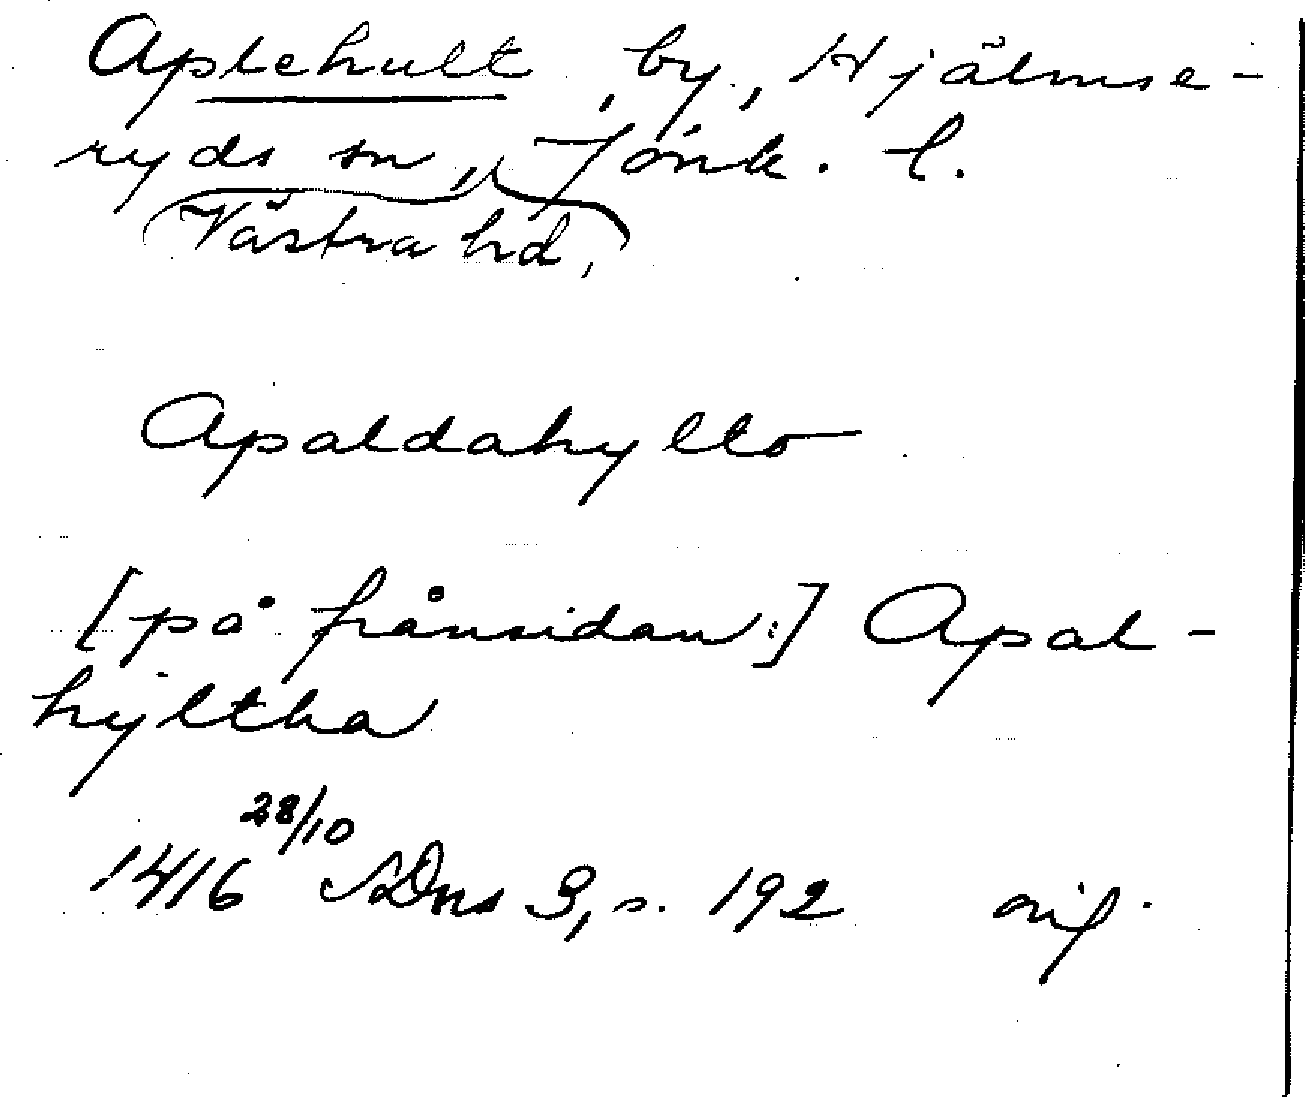 Aplehult, by, Hjälmse-
ryds sn, Jönk. l.
Västra hd,
Apaldahylto
[på frånsidan:] Apal-
hyltha
1416 28/10 SDns 3, s. 192 orig.